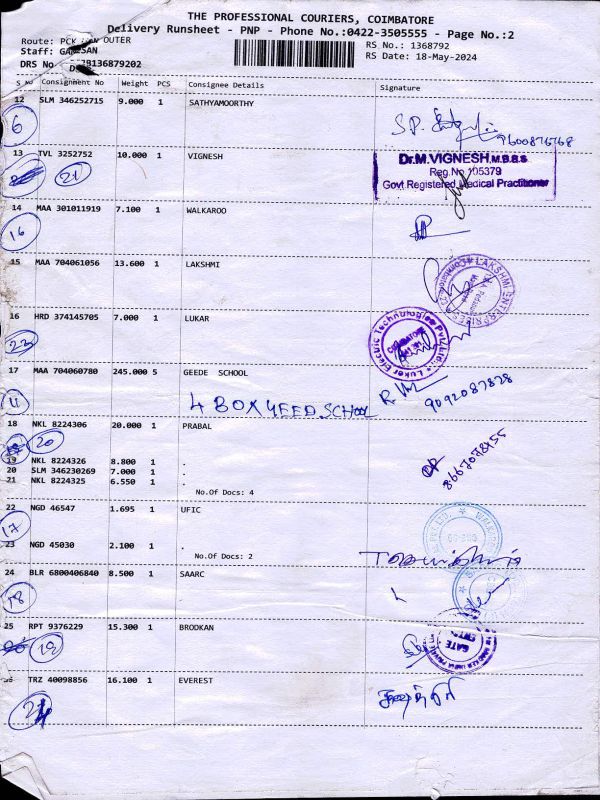 THE PROFESSIONAL COURIERS, COIMBATORE
Delivery Runsheet - PNP - Phone No.:0422-3505555 - Page No.:2
Route: PCK OUTER
Staff: GANESAN
RS No.: 1368792
RS Date: 18-May-2024
DRS No 136879202
S No Consignment No Weight PCS Consignee Details Signature
12 SLM 346252715 9.000 1 SATHYAMOORTHY
6
9600876768
13 TVL 3252752 10.000 1 VIGNESH
21
Dr.M.VIGNESH,M.B.B.S
Reg.No.105379
Govt Registered Medical Practitioner
14 MAA 301011919 7.100 1 WALKAROO
16
15 MAA 704061056 13.600 1 LAKSHMI
LAKSHMI ENTERPRISES
16 HRD 374145705 7.000 1 LUKAR
22
Luker Electric Technologies Pvt Ltd
COIMBATORE
17 MAA 704060780 245.000 5 GEEDE SCHOOL
4 BOX GEED SCHOOL
9092087828
18 NKL 8224306 20.000 1 PRABAL
20
19 NKL 8224326 8.800 1 .
20 SLM 346230269 7.000 1 .
21 NKL 8224325 6.550 1 .
No.Of Docs: 4
8667078455
22 NGD 46547 1.695 1 UFIC
17
23 NGD 45030 2.100 1 .
No.Of Docs: 2
24 BLR 6800406840 8.500 1 SAARC
18
25 RPT 9376229 15.300 1 BRODKAN
19
GATE ENTRY
26 TRZ 40098856 16.100 1 EVEREST